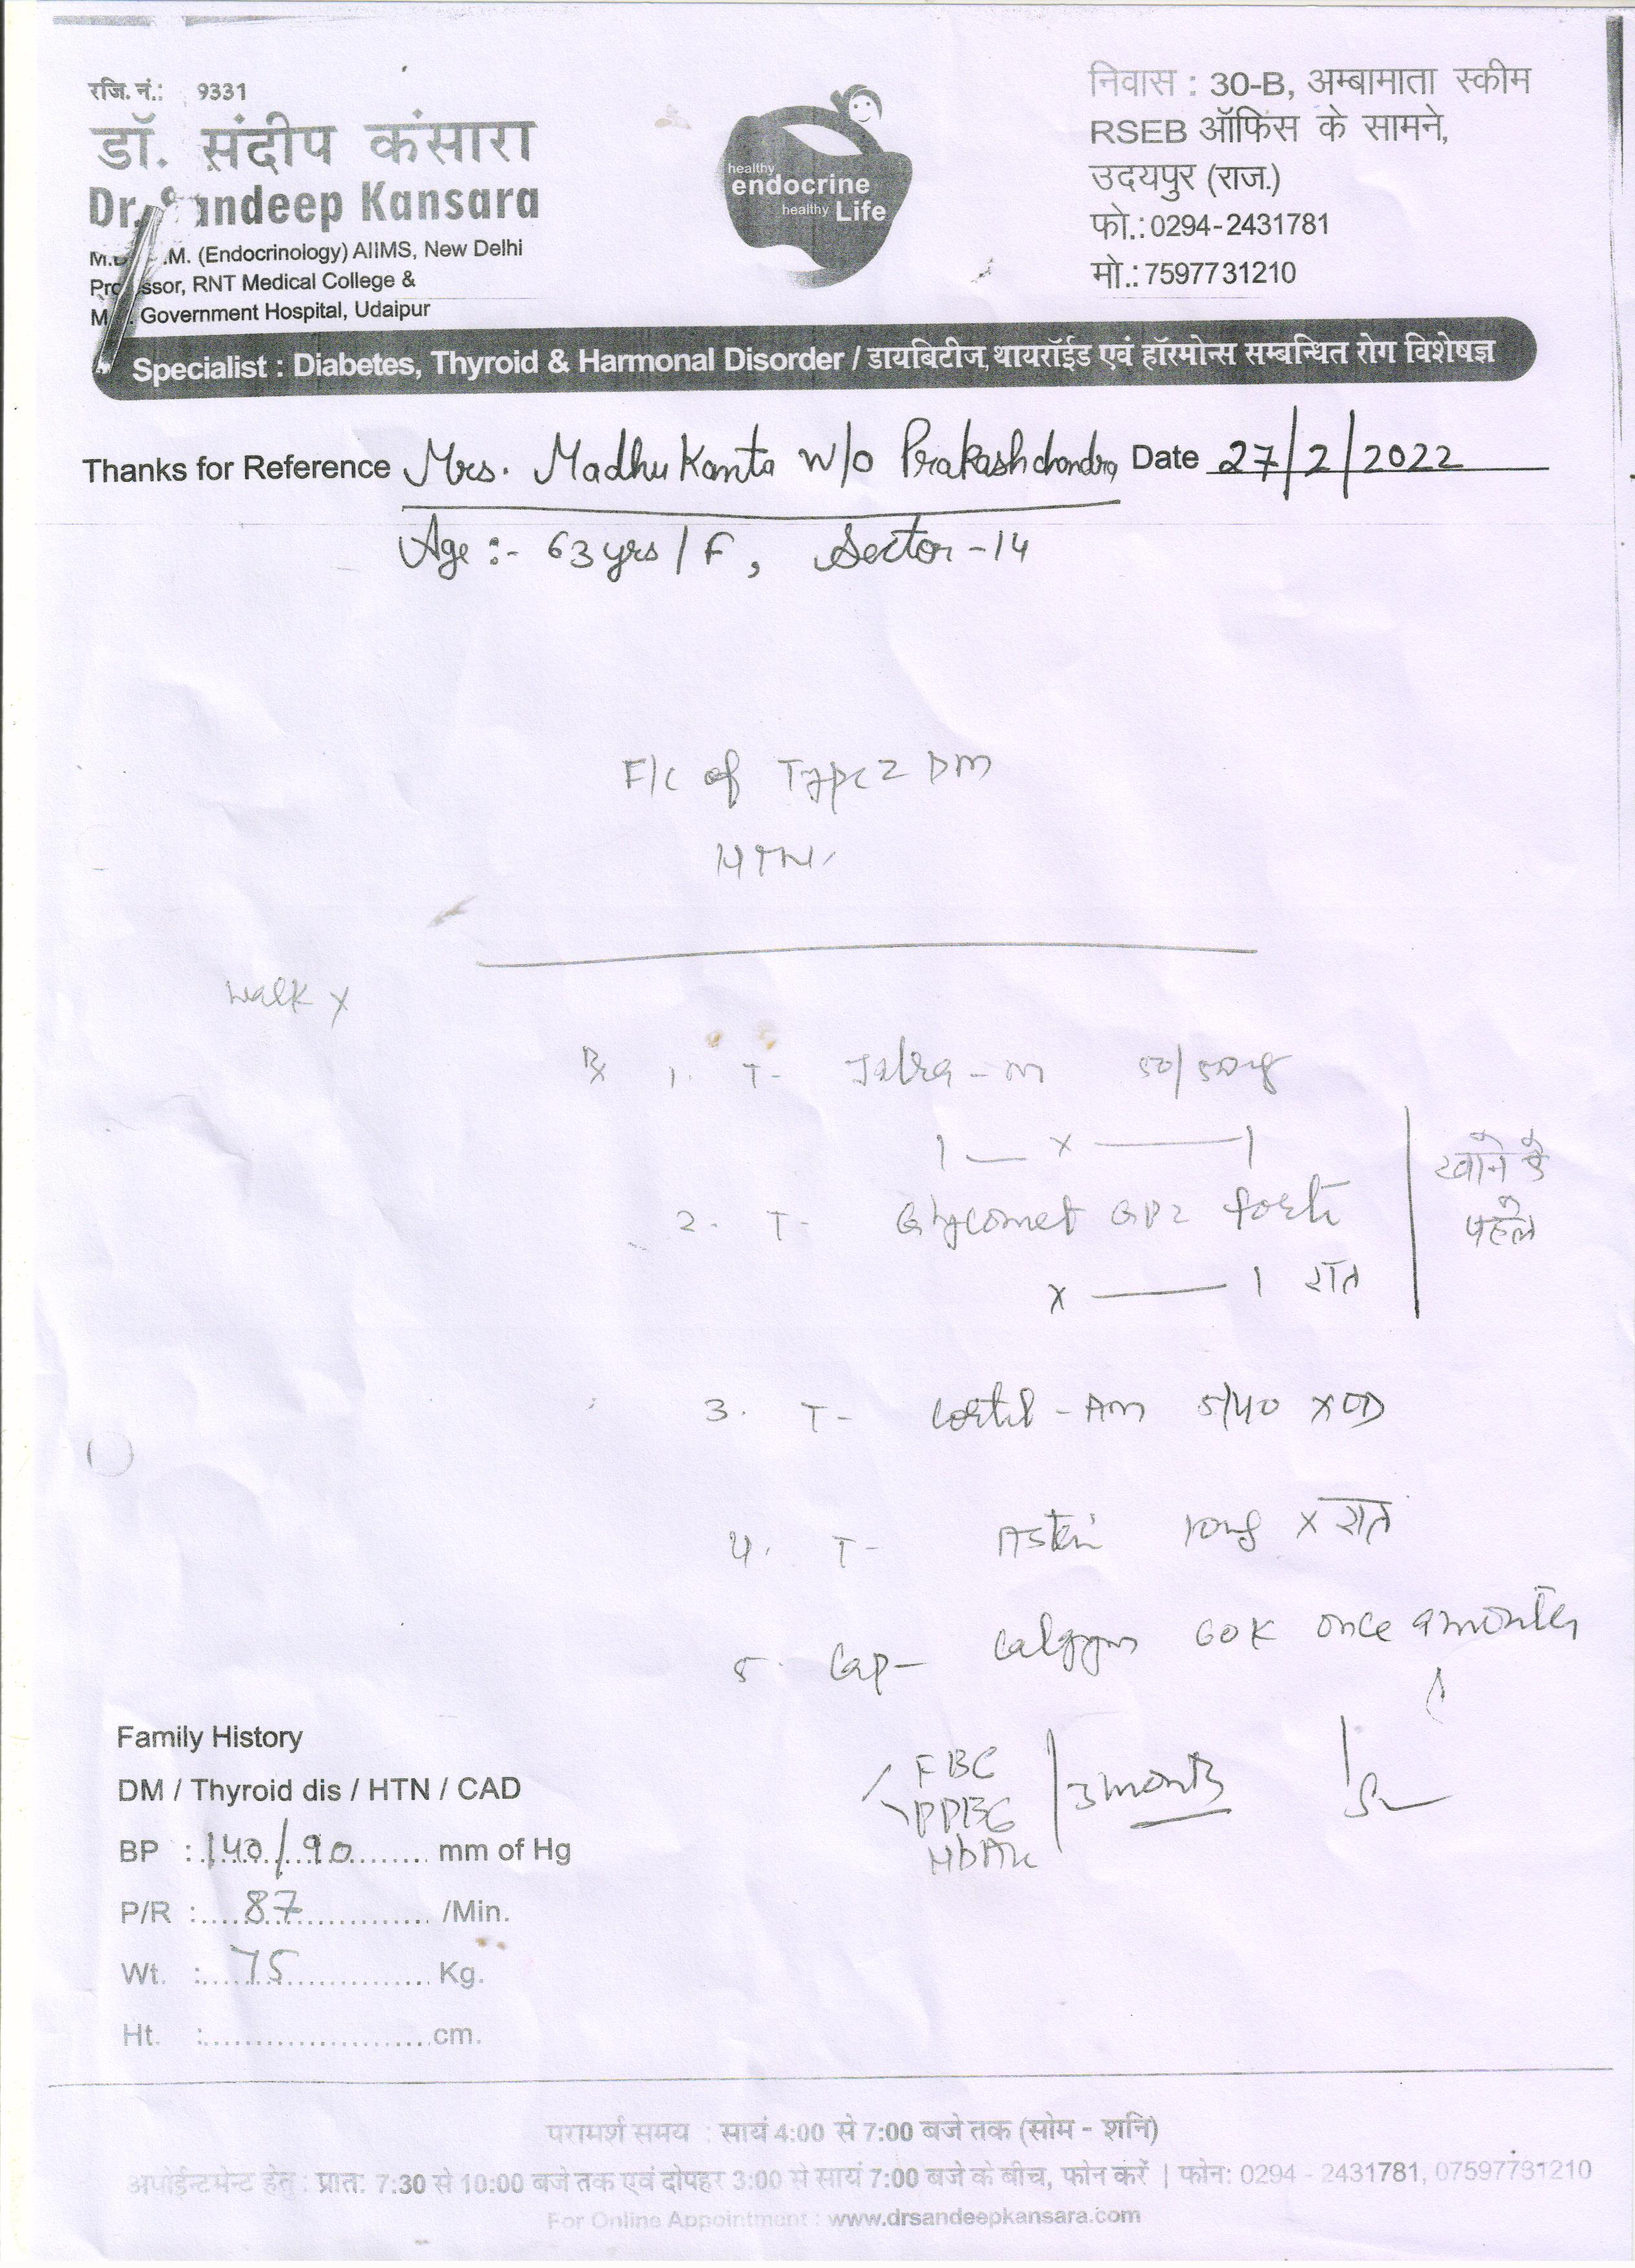 रजि. नं.: 9331
डॉ. संदीप कंसारा
Dr. Sandeep Kansara
M.D., D.M. (Endocrinology) AIIMS, New Delhi
Professor, RNT Medical College &
Government Hospital, Udaipur
healthy
endocrine
healthy Life
निवास : 30-B, अम्बामाता स्कीम
RSEB ऑफिस के सामने,
उदयपुर (राज.)
फो.: 0294-2431781
मो.: 7597731210
Specialist : Diabetes, Thyroid & Harmonal Disorder / डायबिटीज, थायरॉईड एवं हॉरमोन्स सम्बन्धित रोग विशेषज्ञ
Thanks for Reference Mrs. Madhu Kanta w/o Prakashchandra Date 27/2/2022
Age :- 63 yrs / F, Sector-14
F/C of Type 2 DM
HTN
Walk x
Rx 1. T- Jalra-m 50/500mg
1 — x — 1
2. T- Glycomet GP2 forte
x — 1 रात
खाने के
पहले
3. T- -AM 5/40 x OD
4. T- 10mg x रात
5. Cap- 60K once a month
FBG
PPBG
HbA1c
3 months
Family History
DM / Thyroid dis / HTN / CAD
BP : 140/90 mm of Hg
P/R : 87 /Min.
Wt. : 75 Kg.
Ht. : cm.
परामर्श समय : सायं 4:00 से 7:00 बजे तक (सोम - शनि)
अपोईन्टमेन्ट हेतु : प्रातः 7:30 से 10:00 बजे तक एवं दोपहर 3:00 से सायं 7:00 बजे के बीच, फोन करें | फोन: 0294 - 2431781, 07597731210
For Online Appointment : www.drsandeepkansara.com